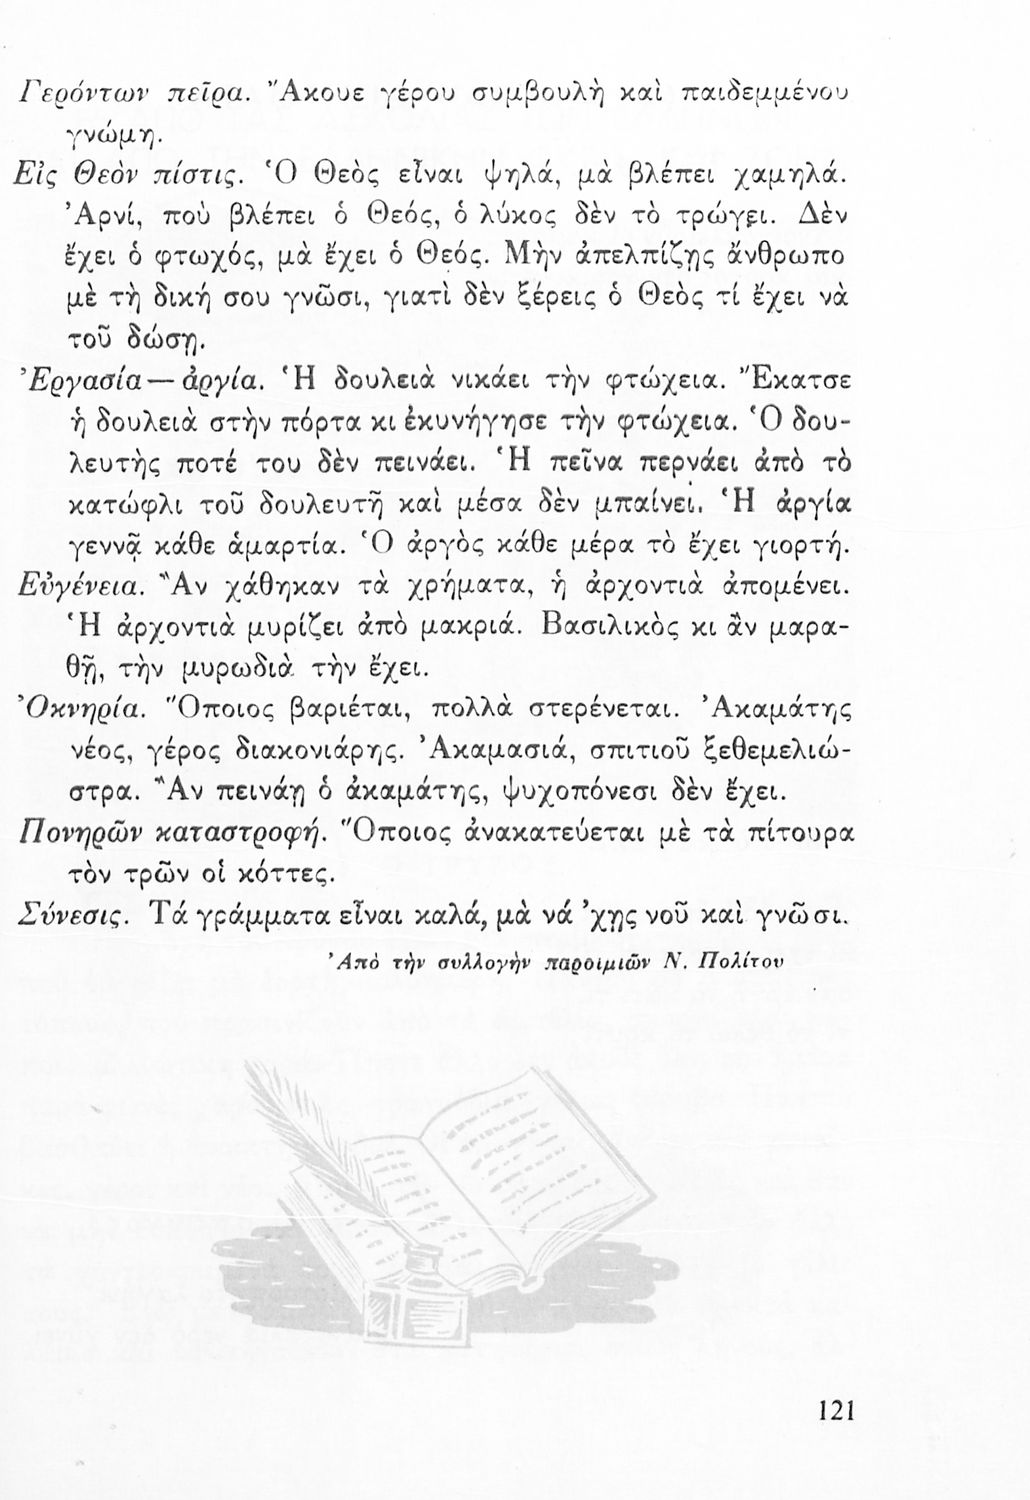 Γερόντων πεῖρα. Ἄκουε γέρου συμβουλὴ καὶ παιδεμμένου
γνώμη.
Εἰς Θεὸν πίστις. Ὁ Θεὸς εἶναι ψηλά, μὰ βλέπει χαμηλά.
Ἀρνί, ποὺ βλέπει ὁ Θεός, ὁ λύκος δὲν τὸ τρώγει. Δὲν
ἔχει ὁ φτωχός, μὰ ἔχει ὁ Θεός. Μὴν ἀπελπίζῃς ἄνθρωπο
μὲ τὴ δική σου γνῶσι, γιατὶ δὲν ξέρεις ὁ Θεὸς τί ἔχει νὰ
τοῦ δώσῃ.
Ἐργασία — ἀργία. Ἡ δουλειὰ νικάει τὴν φτώχεια. Ἔκατσε
ἡ δουλειὰ στὴν πόρτα κι ἐκυνήγησε τὴν φτώχεια. Ὁ δου-
λευτὴς ποτέ του δὲν πεινάει. Ἡ πεῖνα περνάει ἀπὸ τὸ
κατώφλι τοῦ δουλευτῆ καὶ μέσα δὲν μπαίνει. Ἡ ἀργία
γεννᾷ κάθε ἁμαρτία. Ὁ ἀργὸς κάθε μέρα τὸ ἔχει γιορτή.
Εὐγένεια. Ἂν χάθηκαν τὰ χρήματα, ἡ ἀρχοντιὰ ἀπομένει.
Ἡ ἀρχοντιὰ μυρίζει ἀπὸ μακριά. Βασιλικὸς κι ἂν μαρα-
θῇ, τὴν μυρωδιὰ τὴν ἔχει.
Ὀκνηρία. Ὅποιος βαριέται, πολλὰ στερένεται. Ἀκαμάτης
νέος, γέρος διακονιάρης. Ἀκαμασιά, σπιτιοῦ ξεθεμελιώ-
στρα. Ἂν πεινάῃ ὁ ἀκαμάτης, ψυχοπόνεσι δὲν ἔχει.
Πονηρῶν καταστροφή. Ὅποιος ἀνακατεύεται μὲ τὰ πίτουρα
τὸν τρῶν οἱ κόττες.
Σύνεσις. Τά γράμματα εἶναι καλά, μὰ νά ’χῃς νοῦ καὶ γνῶσι.
Ἀπὸ τὴν συλλογὴν παροιμιῶν Ν. Πολίτου
121